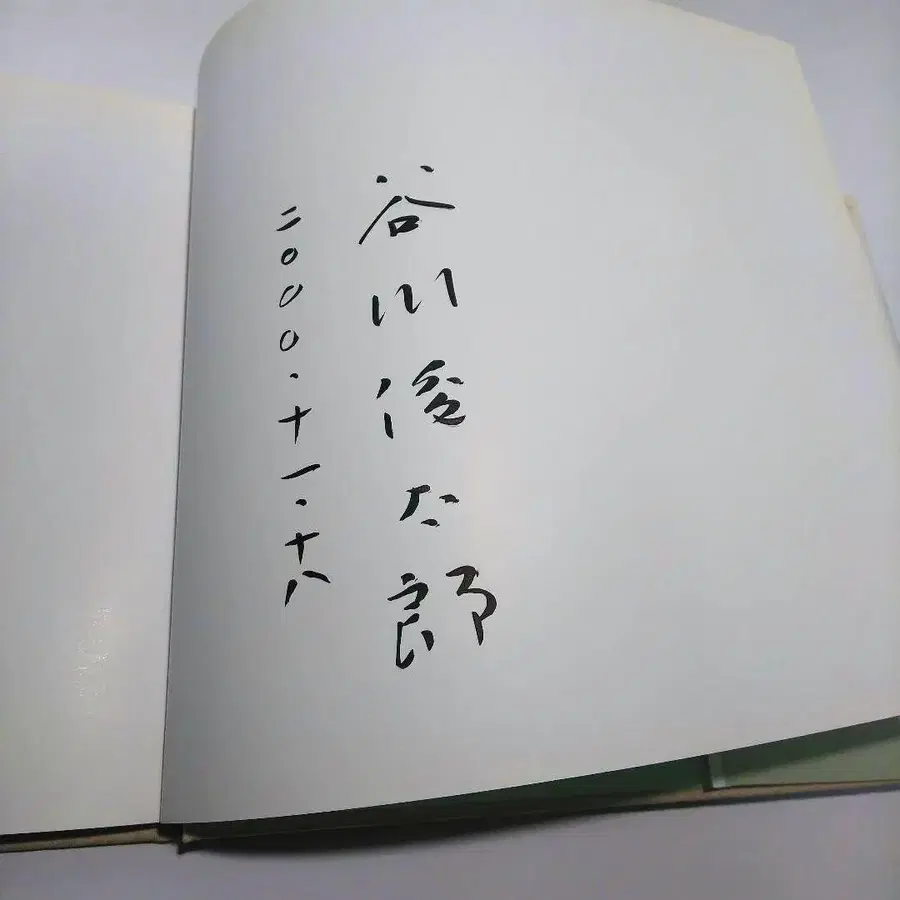 谷川俊太郎
二〇〇〇・十一・十八